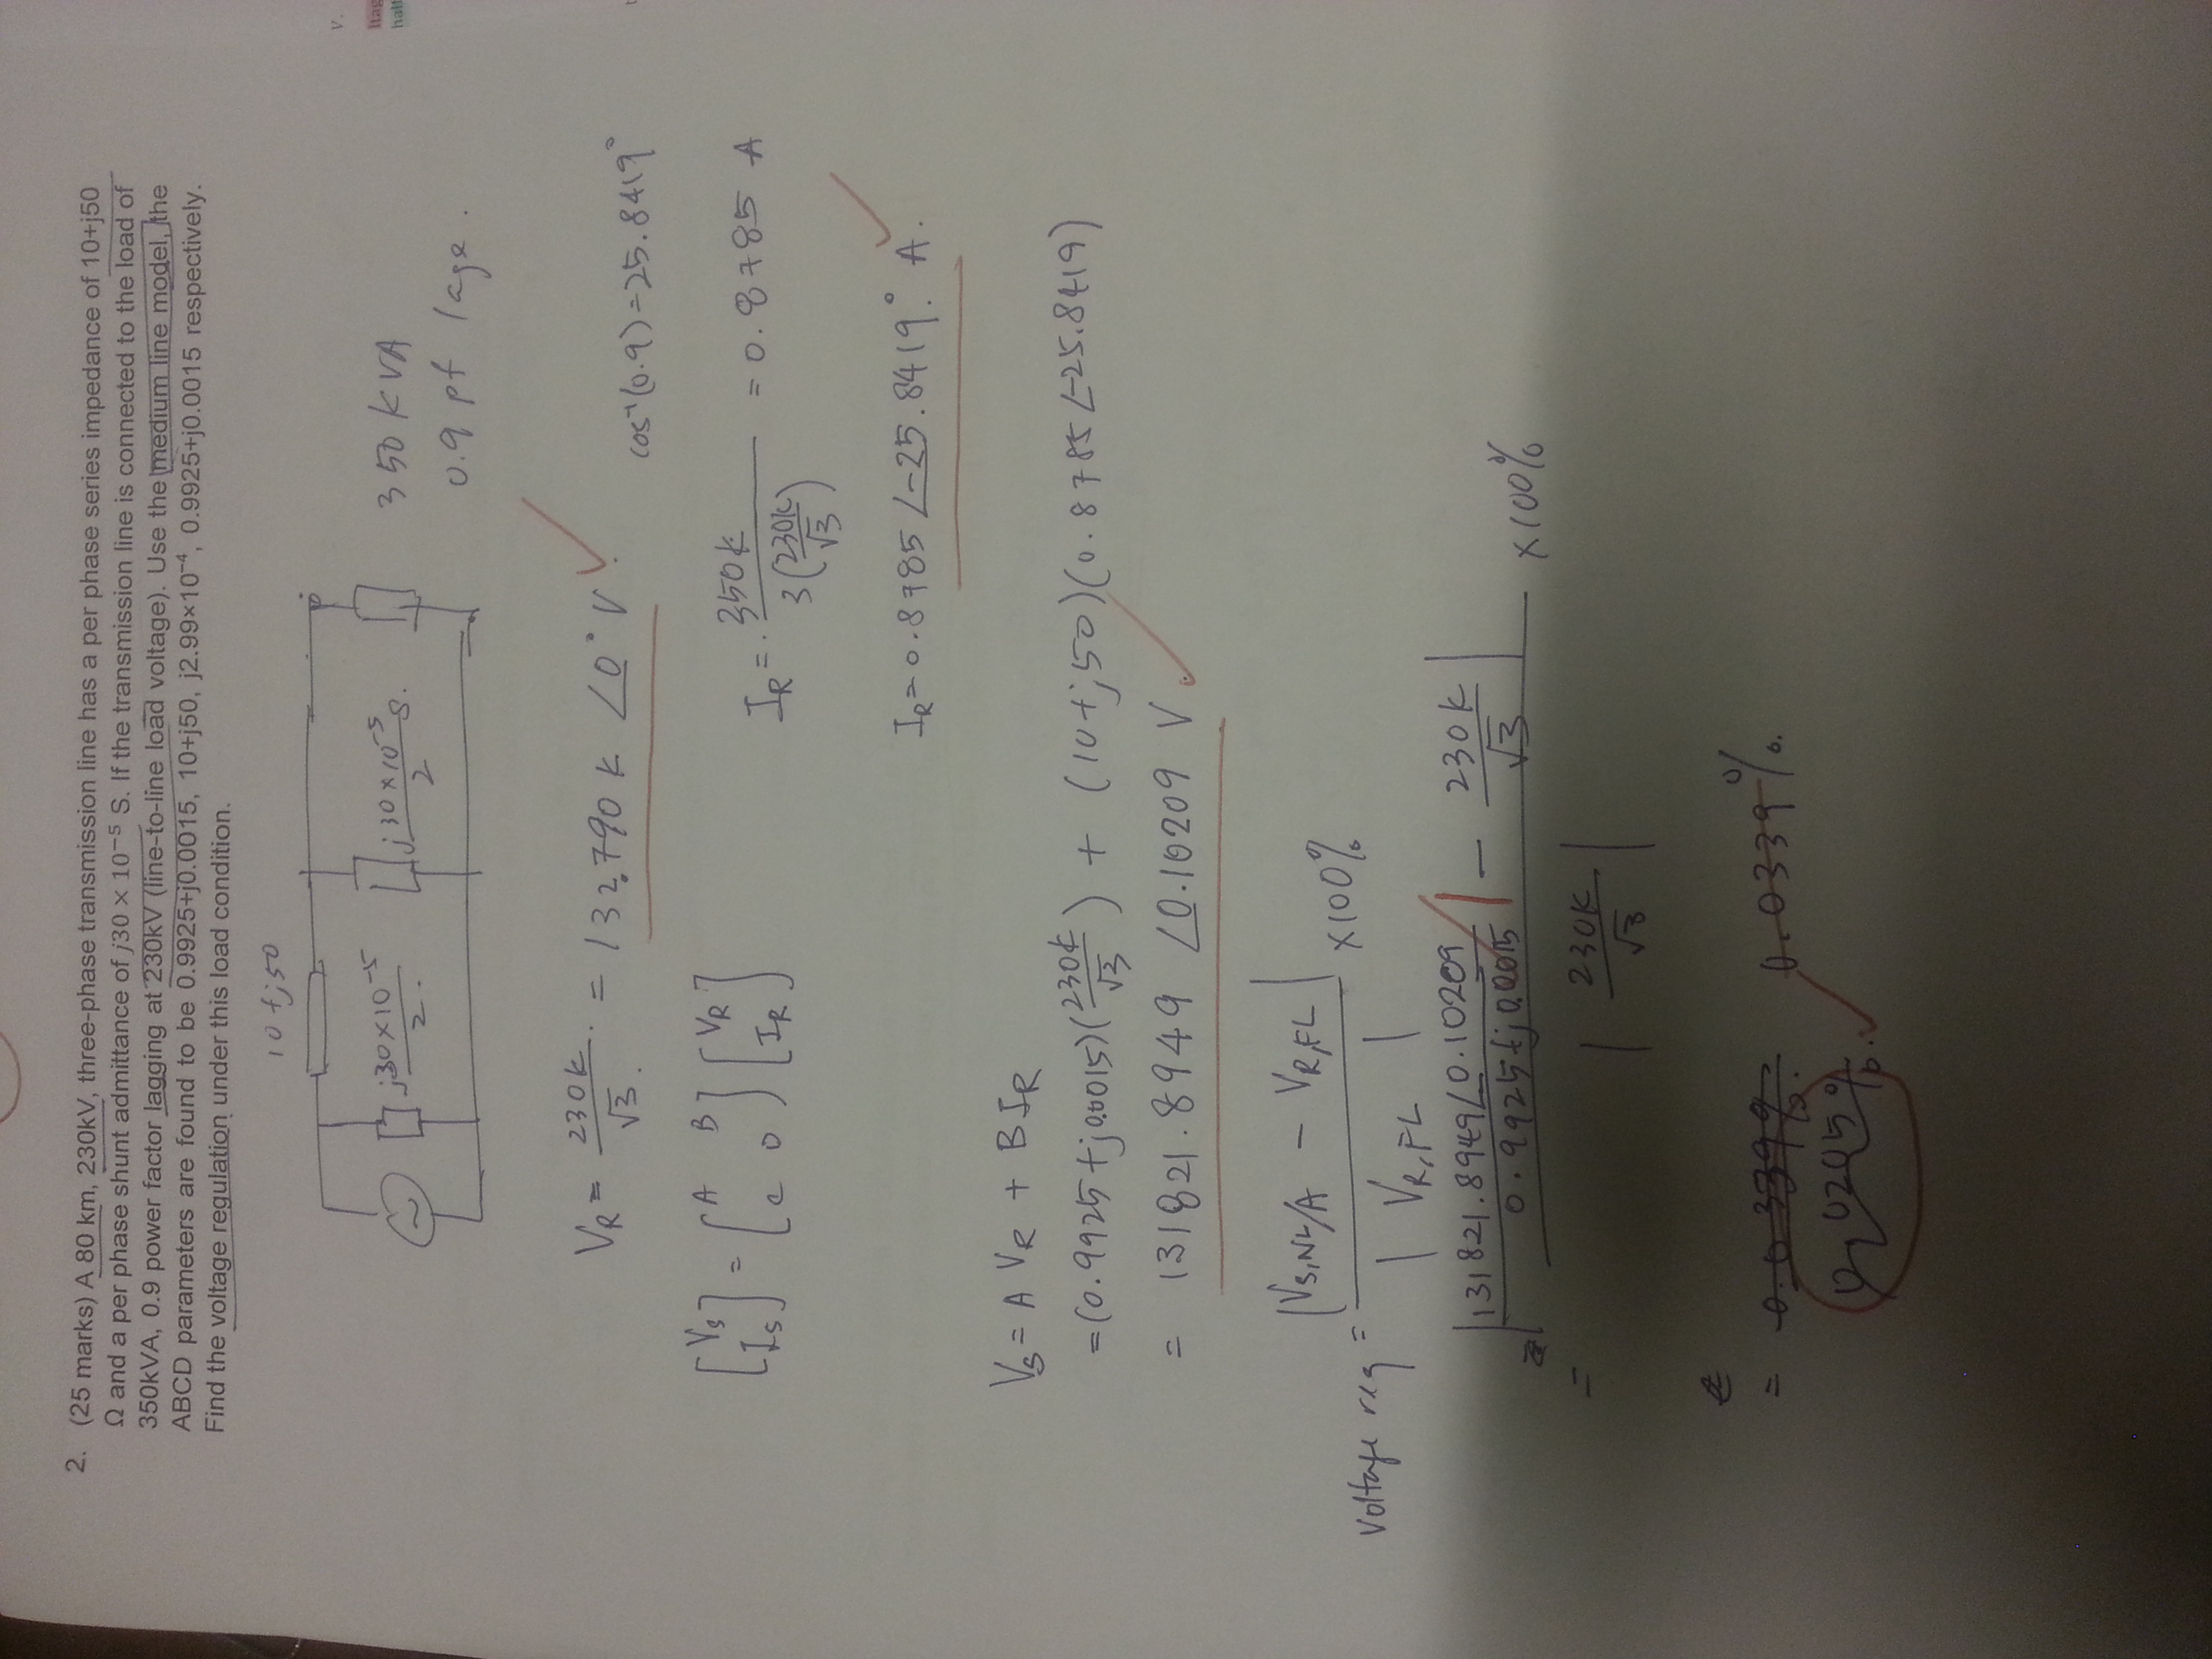 2. (25 marks) A 80 km, 230kV, three-phase transmission line has a per phase series impedance of 10+j50
Ω and a per phase shunt admittance of j30 × 10⁻⁵ S. If the transmission line is connected to the load of
350kVA, 0.9 power factor lagging at 230kV (line-to-line load voltage). Use the medium line model, the
ABCD parameters are found to be 0.9925+j0.0015, 10+j50, j2.99×10⁻⁴, 0.9925+j0.0015 respectively.
Find the voltage regulation under this load condition.
10+j50
j30×10⁻⁵/2
j30×10⁻⁵/2 S.
350 kVA
0.9 pf lage.
V_R = 230k/√3 = 132.790 k ∠0° V.
cos⁻¹(0.9)=25.8419°
[V_S I_S] = [A B C D] [V_R I_R]
I_R = 350k / 3(230k/√3) = 0.8785 A
I_R = 0.8785 ∠-25.8419° A.
V_S = A V_R + B I_R
= (0.9925+j0.0015)(230k/√3) + (10+j50)(0.8785∠-25.8419)
= 131821.8949 ∠0.10209 V
Voltage reg = |V_S,NL/A - V_R,FL| / |V_R,FL| ×100%
= |131821.8949∠0.10209 / 0.9925+j0.0015| - 230k/√3 / |230k/√3| ×100%
= 0.0339% 0.0339%
V.
ltag
half